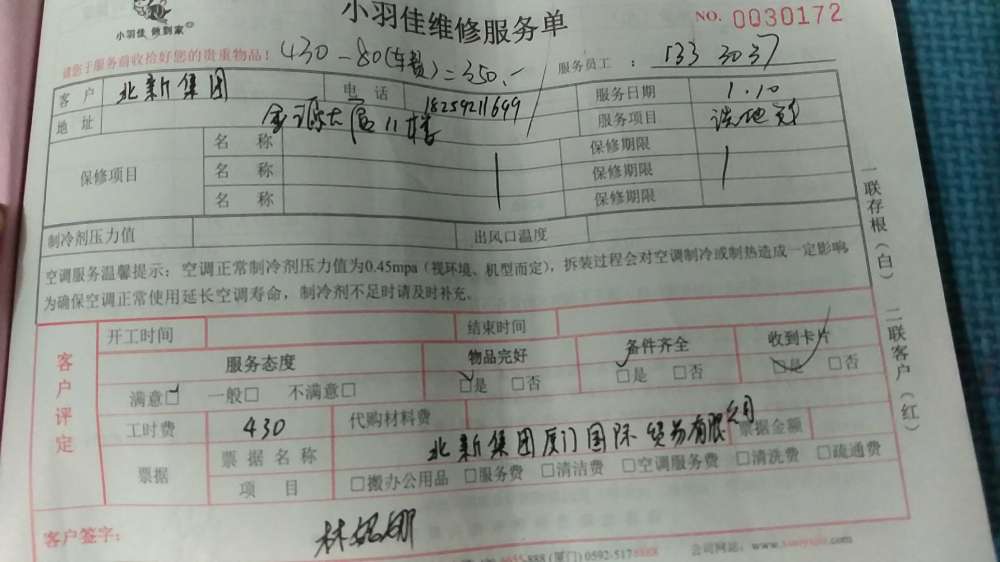 小羽佳 做到家
小羽佳维修服务单
NO. 0030172
请您于服务前收拾好您的贵重物品！ 430-80(车费)=350.-
服务员工 ： 133 3037
客 户 北新集团 电 话 18259211699 服务日期 1.10
地 址 11楼 服务项目
保修项目 名 称 保修期限
名 称 保修期限
名 称 保修期限
制冷剂压力值 出风口温度
空调服务温馨提示：空调正常制冷剂压力值为0.45mpa（视环境、机型而定），拆装过程会对空调制冷或制热造成一定影响，
为确保空调正常使用延长空调寿命，制冷剂不足时请及时补充。
一联存根（白） 二联客户（红）
客户评定
开工时间 结束时间
服务态度 物品完好 备件齐全 收到卡片
满意□ 一般□ 不满意□ □是 □否 □是 □否 □是 □否
工时费 430 代购材料费
票据 票据名称 北新集团厦门国际贸易有限公司 票据金额
项 目 □搬办公用品 □服务费 □清洁费 □空调服务费 □清洗费 □疏通费
客户签字：
888 (厦门) 0592-517 8888 公司网站：www. .com